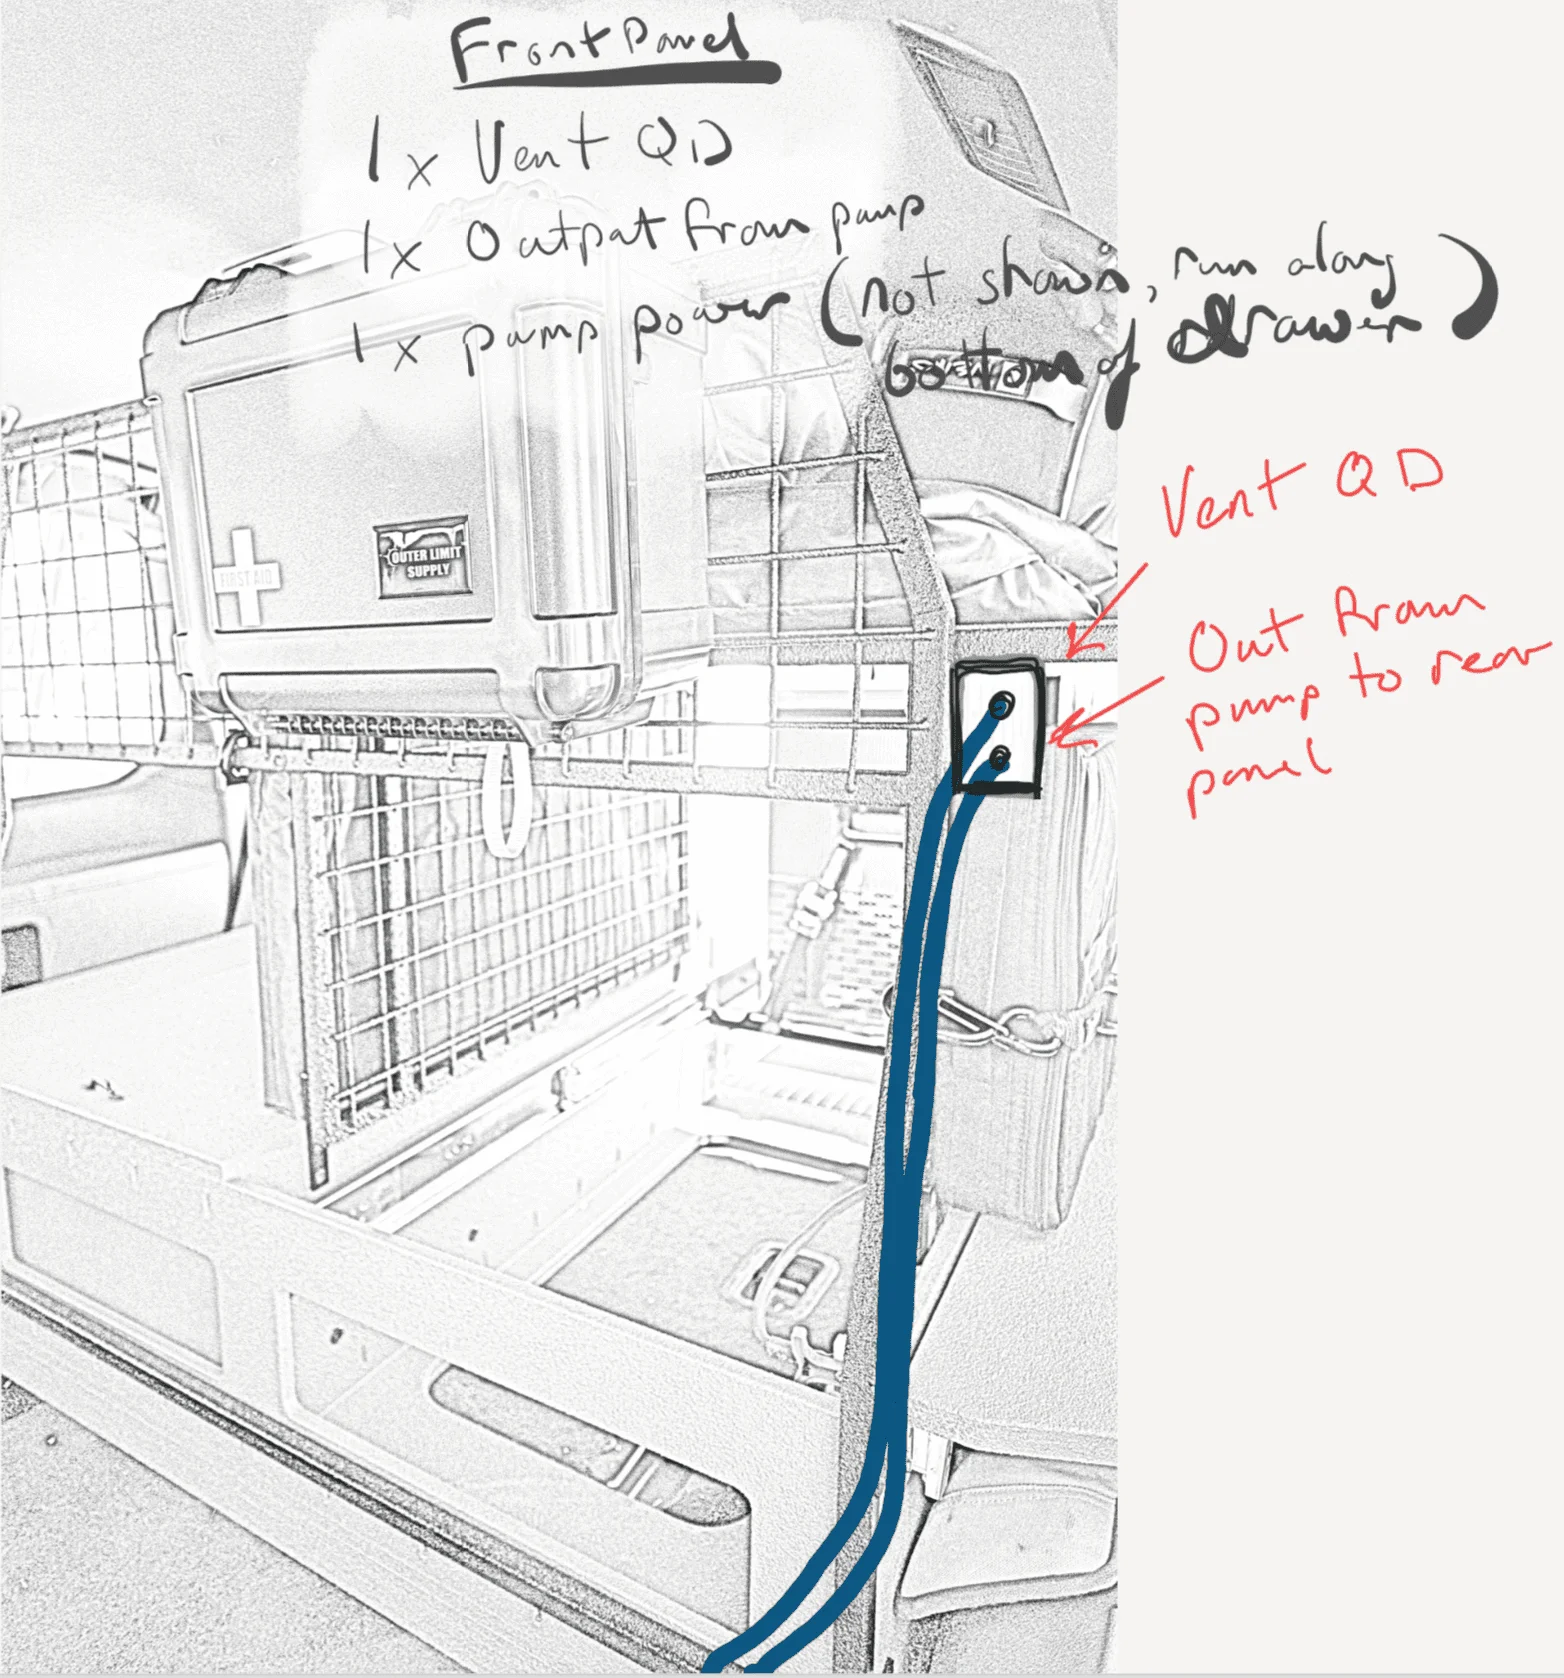 Front Panel
1 x Vent QD
1 x Output from pump
1 x pump power (not shown, run along
bottom of drawer)
Vent QD
Out from
pump to rear
panel
FIRST AID
OUTER LIMIT
SUPPLY